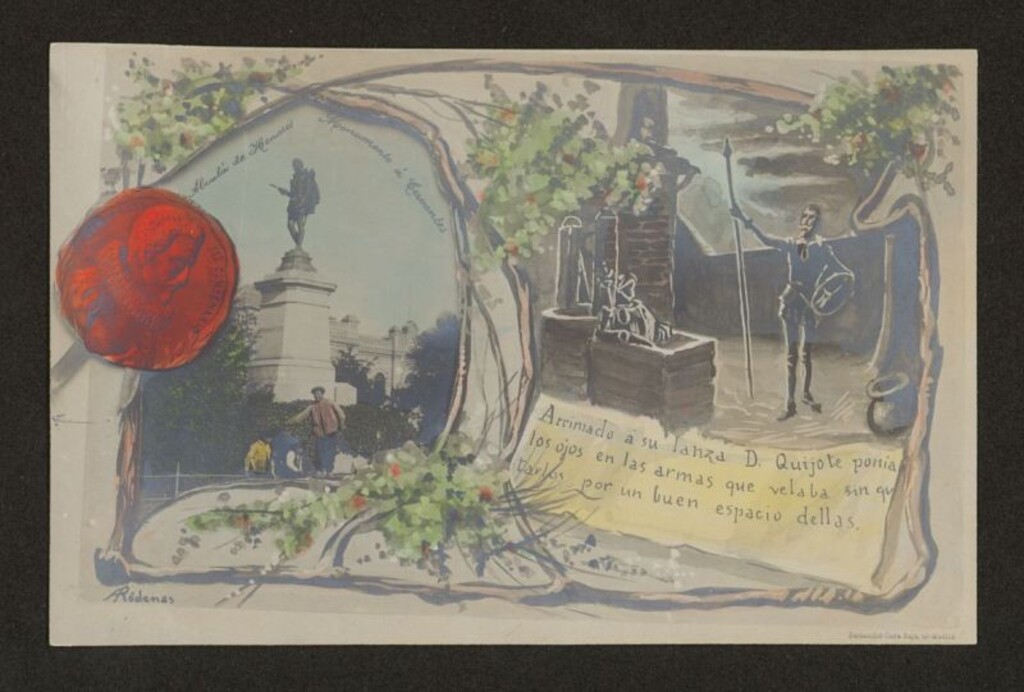 Alcalá de Henares
Monumento á Cervantes
Arrimado a su lanza D. Quijote ponia
los ojos en las armas que velaba sin qu
tarlos por un buen espacio dellas.
ARódenas